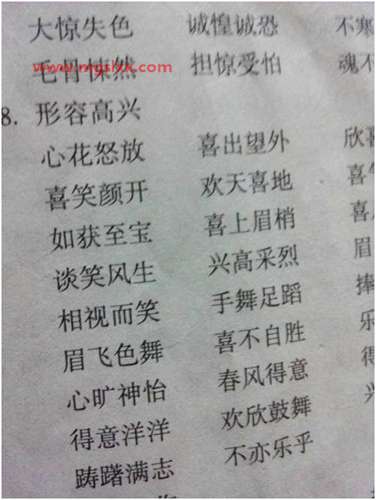 大惊失色 诚惶诚恐 不寒
毛骨悚然 担惊受怕 魂不
8. 形容高兴
心花怒放 喜出望外 欣喜
喜笑颜开 欢天喜地 喜
如获至宝 喜上眉梢 喜
谈笑风生 兴高采烈 眉
相视而笑 手舞足蹈 捧
眉飞色舞 喜不自胜 乐
心旷神怡 春风得意 得
得意洋洋 欢欣鼓舞
踌躇满志 不亦乐乎